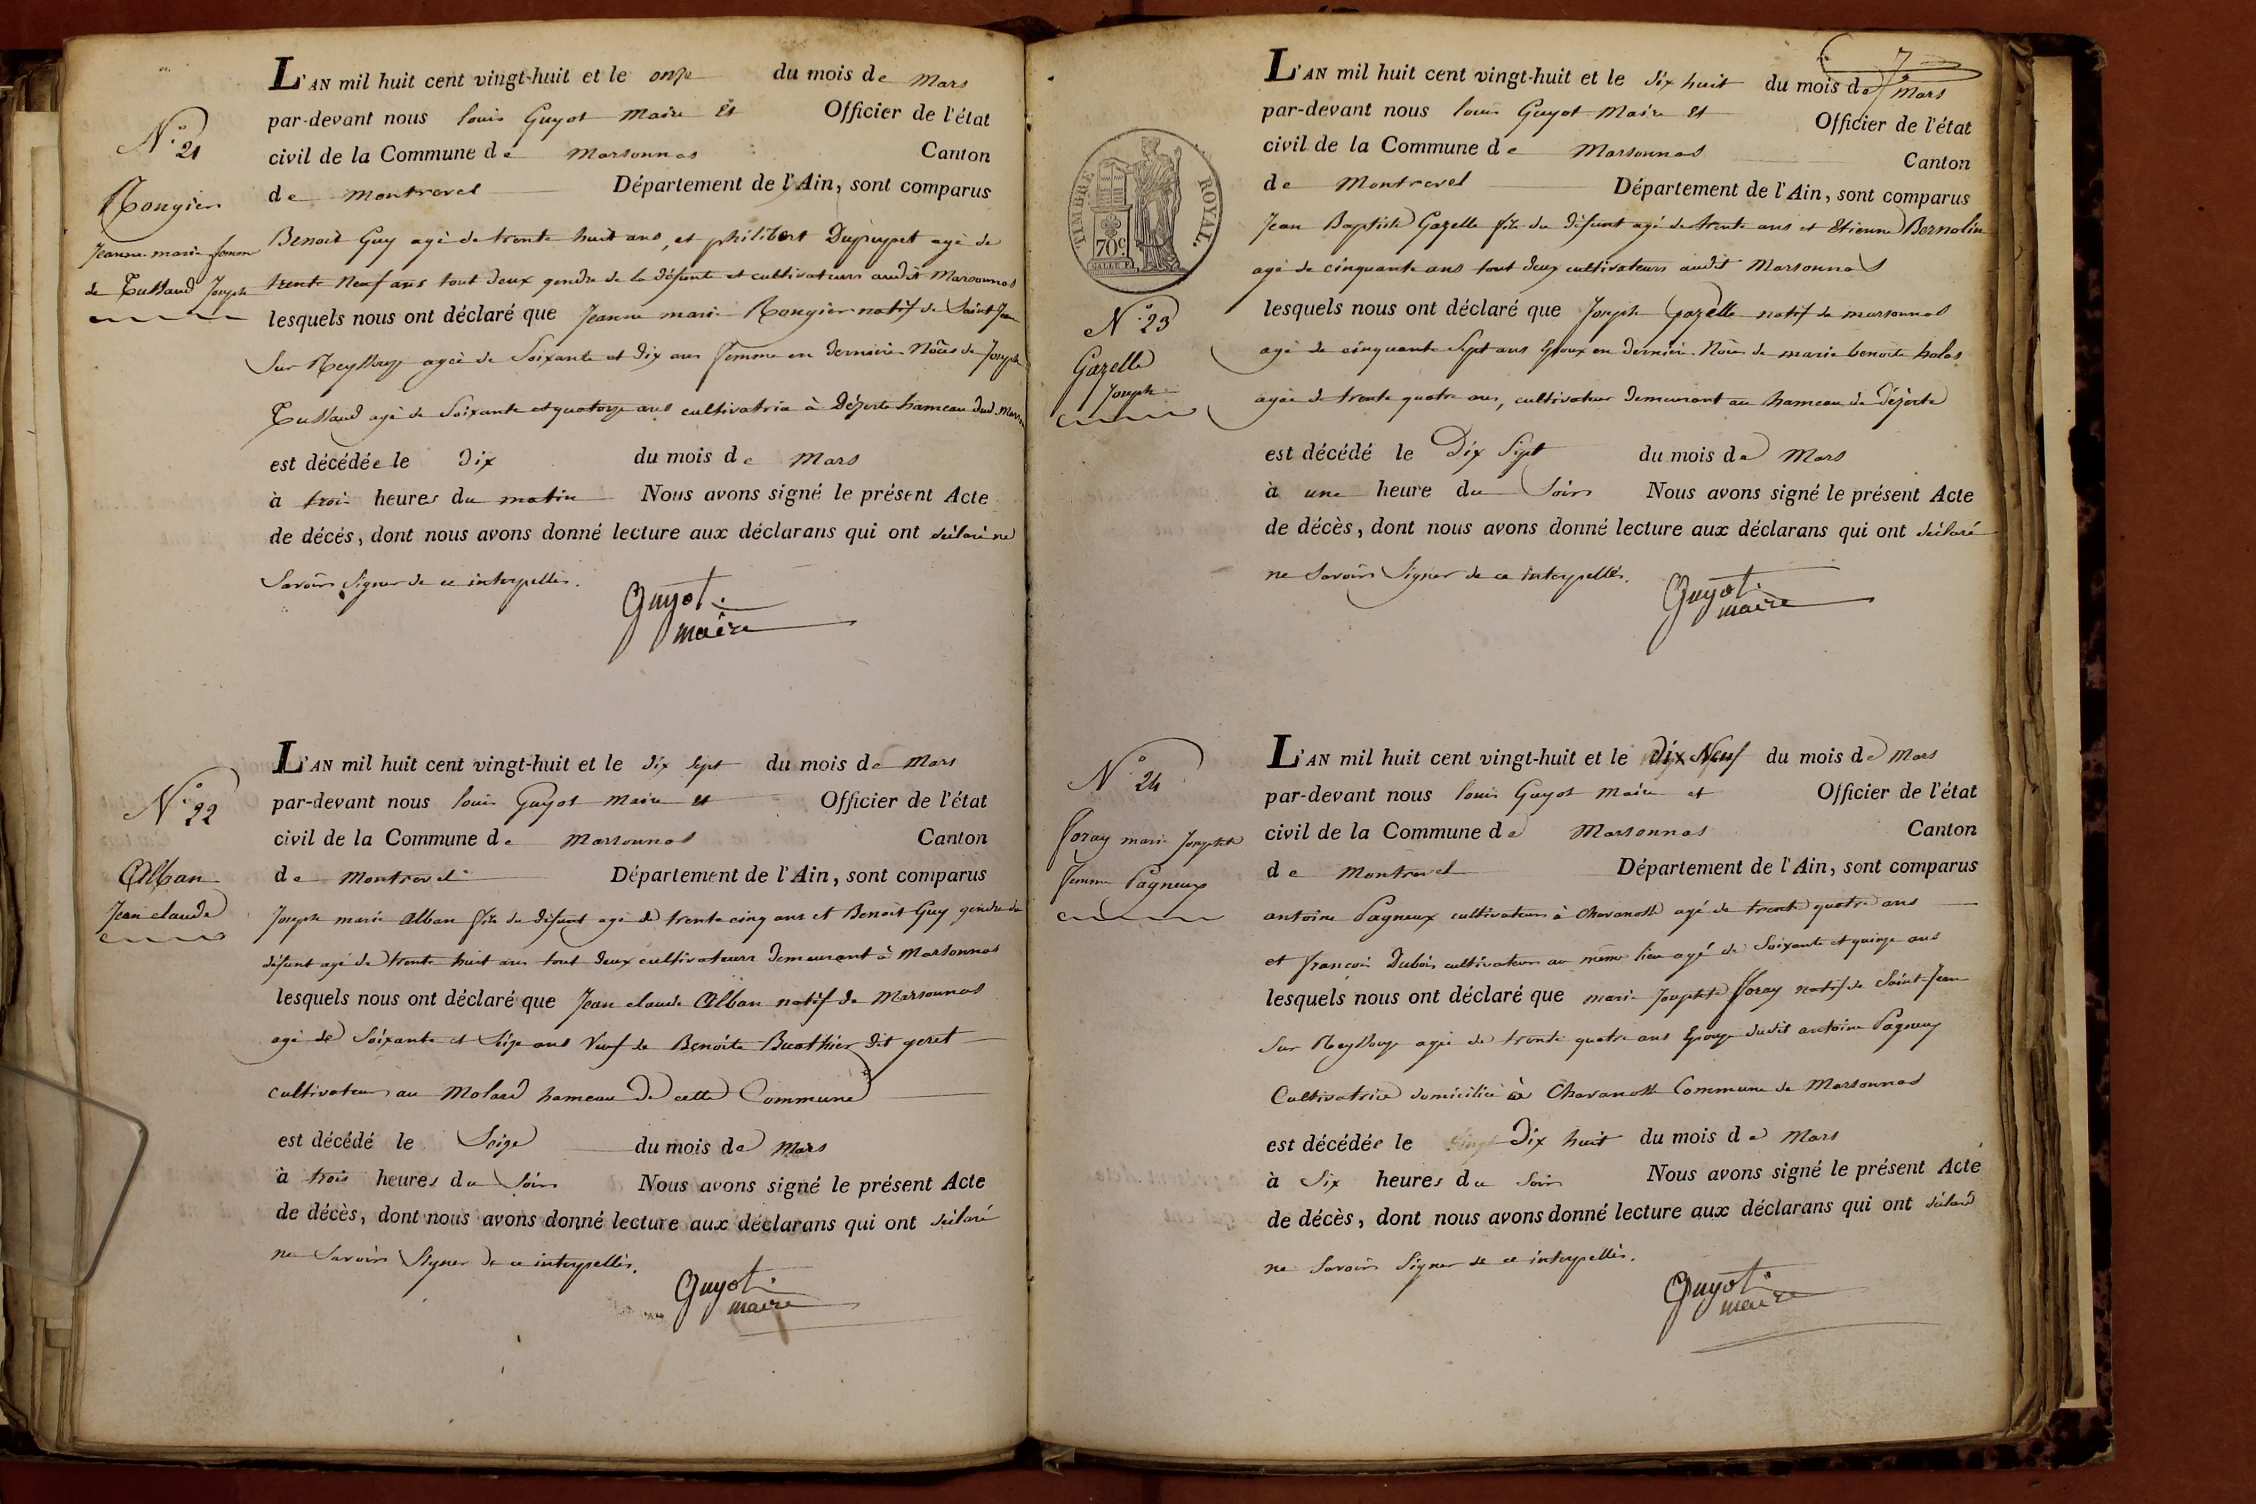 N.° 21
Rongier
Jeanne marie femme
de Tussaud Joseph
L'AN mil huit cent vingt-huit et le onze du mois de Mars
par-devant nous louis Guyot Maire et Officier de l'état
civil de la Commune de Marsonnas Canton
de Montrevel Département de l'Ain, sont comparus
Benoit Guy agé de trente huit ans, et philibert Dupuget agé de
trente Neuf ans tout deux gendre de la défunte et cultivateurs audit Marsonnas
lesquels nous ont déclaré que Jeanne marie Rongier natif de Saint Jean
Sur Reyssouze agée de Soixante et dix ans femme en derniere Nôces de Joseph
Tussaud agé de Soixante et quatorze ans cultivatrice à Dézerte hameau dud.
est décédée le Dix du mois de Mars
à trois heures du matin Nous avons signé le présent Acte
de décès, dont nous avons donné lecture aux déclarans qui ont déclaré ne
Savoir Signer de ce interpellés.
Guyot
maire
N.° 22
Alban
Jean claude
L'AN mil huit cent vingt-huit et le dix Sept du mois de Mars
par-devant nous louis Guyot Maire et Officier de l'état
civil de la Commune de Marsonnas Canton
de Montrevel Département de l'Ain, sont comparus
Joseph marie Alban fils du défunt agé de trente cinq ans et Benoit Guy gendre du
défunt agé de trente huit ans tout deux cultivateurs demeurant à Marsonnas
lesquels nous ont déclaré que Jean claude Alban natif de Marsonnas
agé de Soixante et Seize ans Veuf de Benoite Buathier dit geret
cultivateur au Molard hameau de cette Commune
est décédé le Seize du mois de Mars
à trois heures du Soir Nous avons signé le présent Acte
de décès, dont nous avons donné lecture aux déclarans qui ont déclaré
ne Savoir Signer de ce interpellés.
Guyot
maire
7
TIMBRE ROYAL.
70c.
N.° 23
Gazelle
Joseph
L'AN mil huit cent vingt-huit et le dix huit du mois de Mars
par-devant nous louis Guyot Maire et Officier de l'état
civil de la Commune de Marsonnas Canton
de Montrevel Département de l'Ain, sont comparus
Jean Baptiste Gazelle fils du défunt agé de trente ans et Etienne Bernolin
agé de cinquante ans tout deux cultivateurs audit Marsonnas
lesquels nous ont déclaré que Joseph Gazelle natif de marsonnas
agé de cinquante Sept ans Epoux en derniere Nôces de marie benoite
agée de trente quatre ans, cultivateur demeurant au hameau de Dézerte
est décédé le Dix Sept du mois de Mars
à une heure du Soir Nous avons signé le présent Acte
de décès, dont nous avons donné lecture aux déclarans qui ont déclaré
ne Savoir Signer de ce interpellés.
Guyot
maire
N.° 24
foray marie Josephte
femme Pagneux
L'AN mil huit cent vingt-huit et le dix Neuf du mois de Mars
par-devant nous louis Guyot Maire et Officier de l'état
civil de la Commune de Marsonnas Canton
de Montrevel Département de l'Ain, sont comparus
antoine Pagneux cultivateur à Chavanosse agé de trente quatre ans
et françois Dubois cultivateur au même lieu agé de Soixante et quinze ans
lesquels nous ont déclaré que marie Josephte foray natif de Saint-Jean
Sur Reyssouze agée de trente quatre ans Epouze dudit antoine Pagneux
Cultivatrice domiciliée à Chavanosse Commune de Marsonnas
est décédée le Dix huit du mois de Mars
à Six heures du Soir Nous avons signé le présent Acte
de décès, dont nous avons donné lecture aux déclarans qui ont déclaré
ne Savoir Signer de ce interpellés.
Guyot
maire